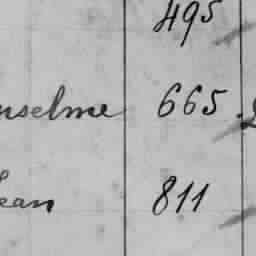 495
nselme 665.
ean 811